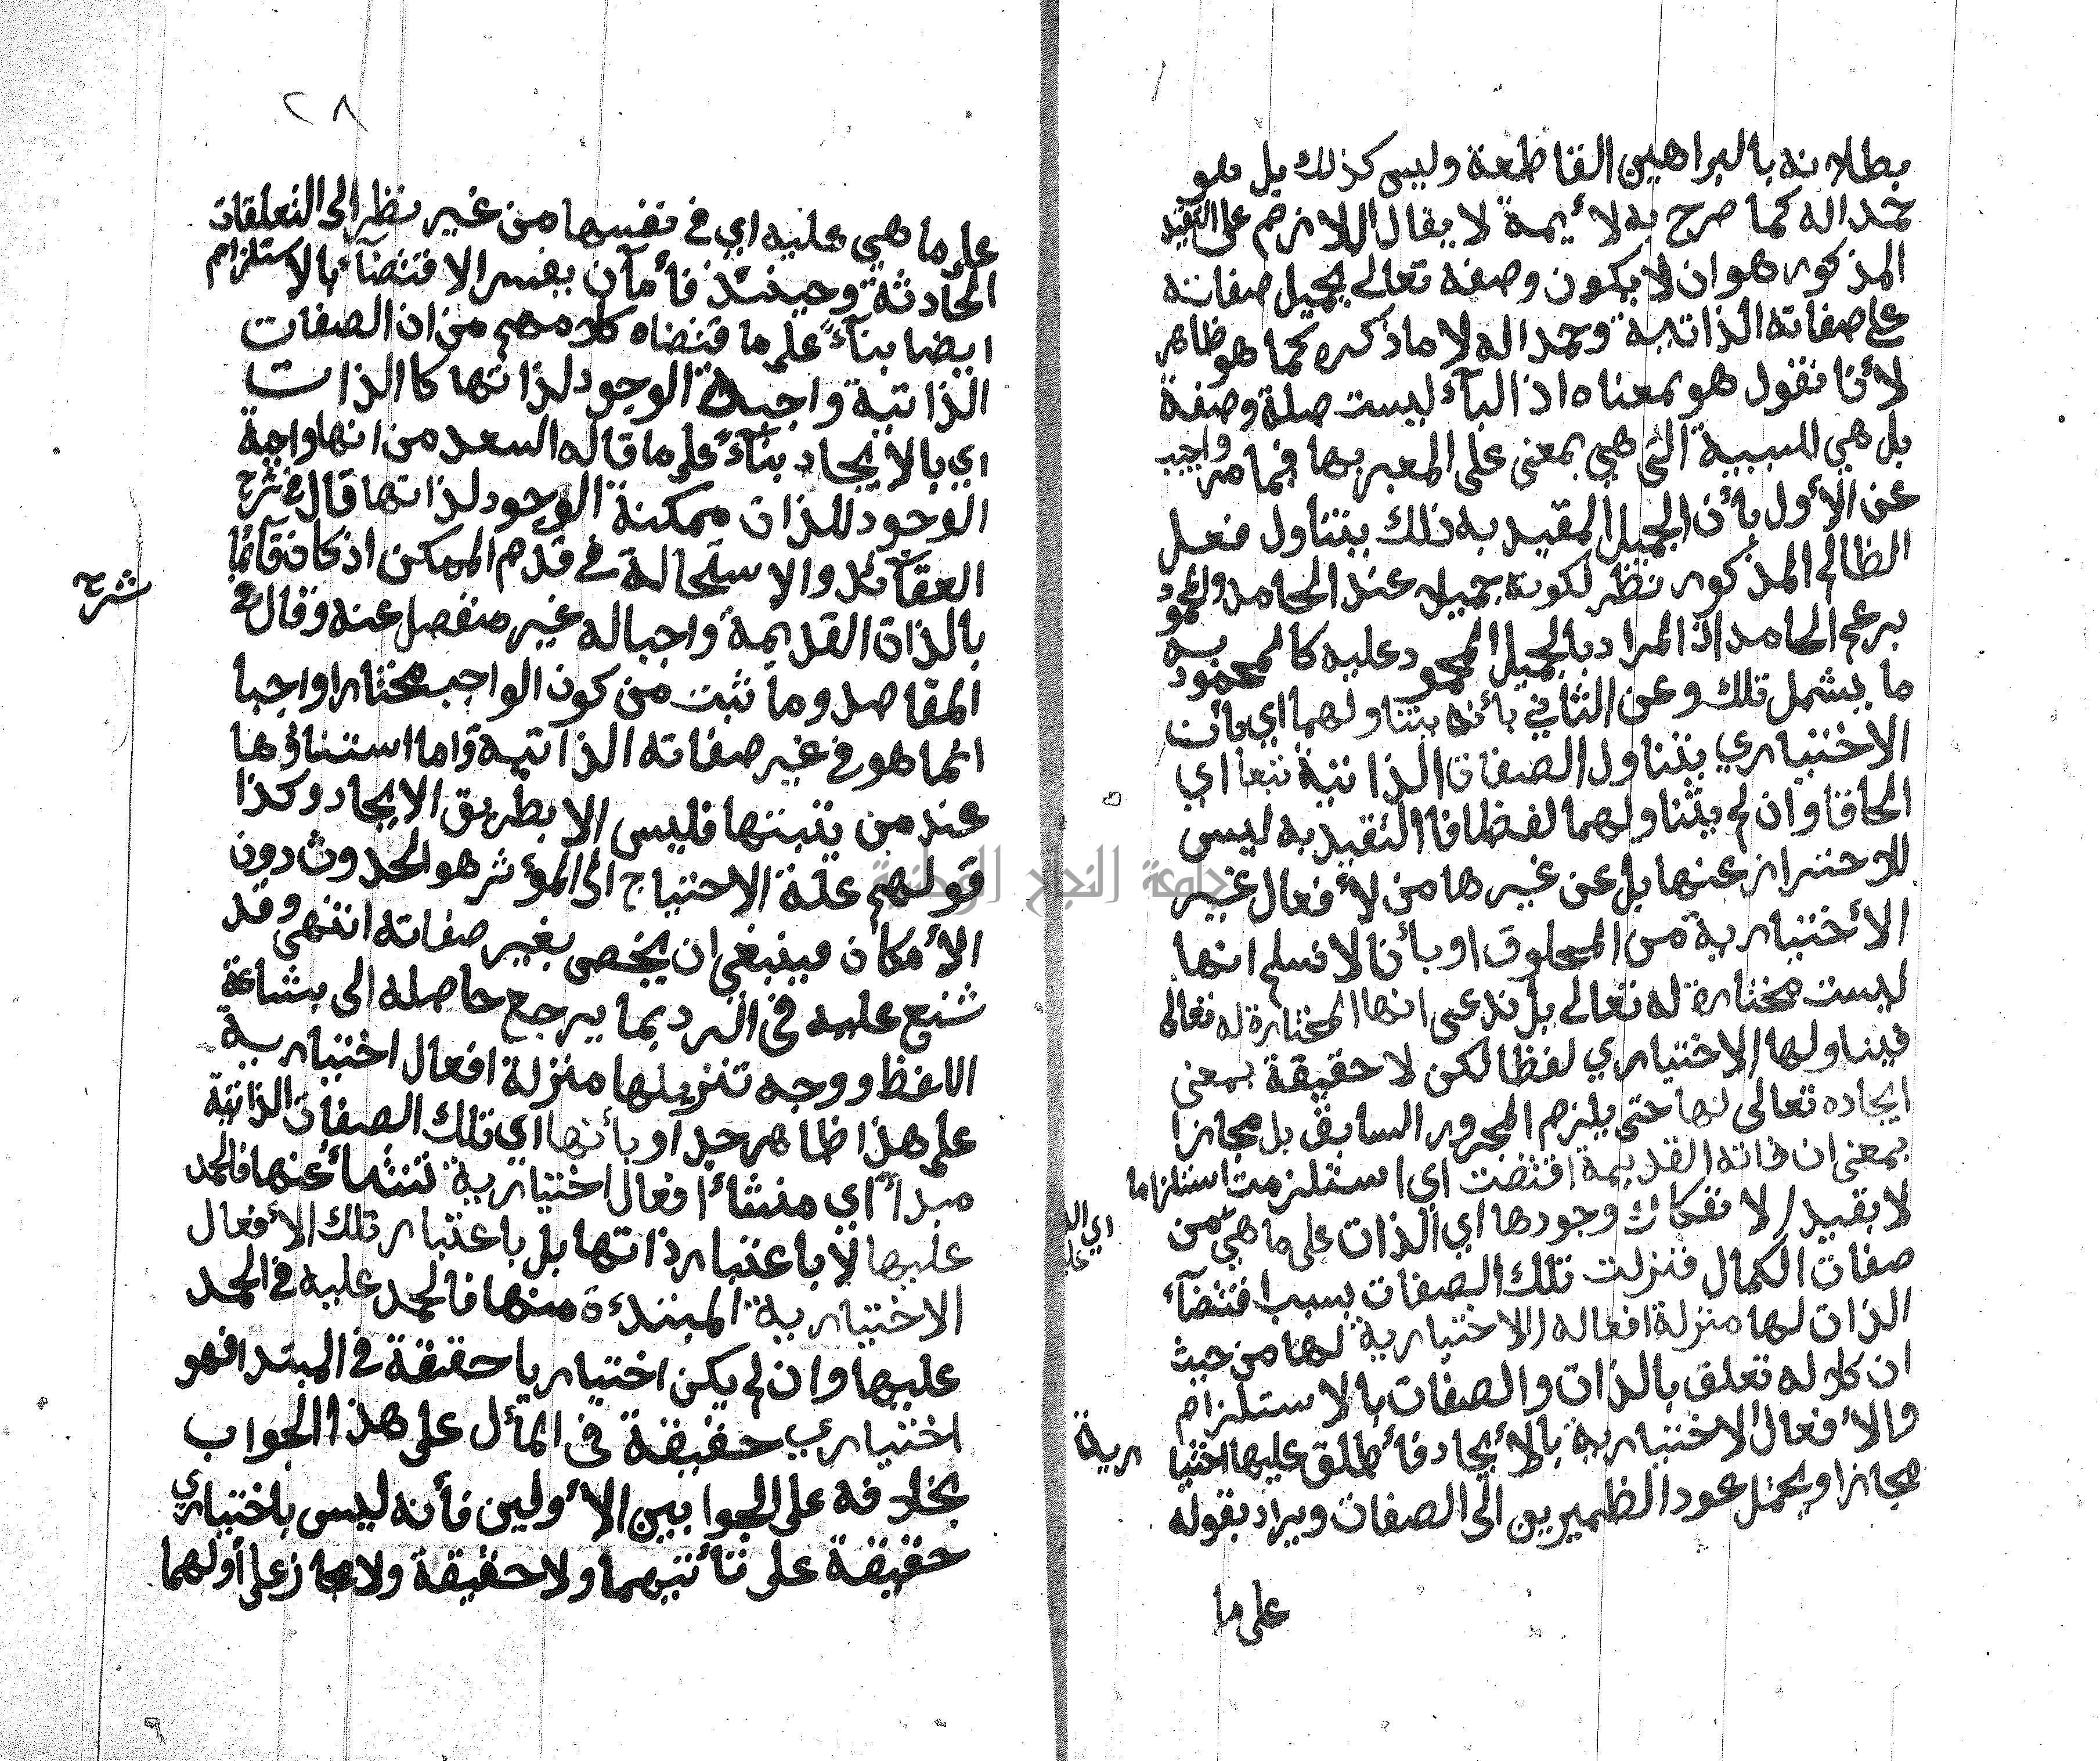 بطلانه بالبراهين القاطعة وليس كذلك بل هو
حمد اله كما صرح به لأيمة لا يقال اللازم على التقييد
المذكور هو ان لا يكون وصفه تعالى بجميل صفاته
على صفاته الذاتية وحمد اله لا ما ذكره كما هو ظاهر
لأنا نقول هو بمعناه اذ البآء ليست صلة وصفة
بل هي السببية التي هي بمعنى على المعبر بها فيما مر واجيب
عن الأول بأن الجميل المقيد به ذلك يتناول فعل
الظالم المذكور نظر لكونه جميل عند الحامد والمحمود
بزعم الحامد اذ المراد بالجميل المحمود عليه كالمحمود به
ما يشمل تلك وعن الثاني بأنه يتناولهما اي بأن
الاختياري يتناول الصفات الذاتية تبعا اي
الحاقا وان لم يتناولهما لفظا فالتقيد به ليس
للاحتراز عنها بل عن غيرها من لأفعال غير
الأختيارية من المخلوق او بأنا لا نسلم انها
ليست مختارة له تعالى بل ندعى انها المختارة له تعالى
فيناولها الاختياري لفظا لكن لا حقيقة بمعنى
ايجاده تعالى لها حتى يلزم المحرور السابق بل مجازا
بمعنى ان ذاته القديمة اقتضت اي استلزمت استلزاما
لا يقيد الانفكاك وجودها اي الذات على ما هي من
صفات الكمال فنزلت تلك الصفات بسبب اقتضآء
الذات لها منزلة افعاله الاختيارية لها من حيث
ان كلا له تعلق بالذات والصفات بالاستلزام
والأفعال الاختيارية بالأيجاد فأطلق عليها اختيا رية
مجازا ويحتمل عود الظميرين الى الصفات ويراد بقوله
على ما
جامعة النجاح الوطنية
٢٨
على ما هي عليه اي في نفسها من غير نظر الى التعلقات
الحأدثة وحينئذ فأمآن يفسر الاقتضآء بالاستلزام
ايضا بنآءً على ما قتضاه كلامهم من ان الصفات
الذاتية واجبة الوجود لذاتها كالذات
اي بالأيجاد بنآءً على ما قاله السعد من انها واجبة
الوجود للذات ممكنة الوجود لذاتها قال في شرح
العقآئد والاستحالة في قدم الممكن اذ كان قآئما
بالذات القديمة واجبا له غير منفصل عنه وقال في
شرح
المقاصد وما ثبت من كون الواجب مختارا واجبا
انما هو في غير صفاته الذاتية واما استناؤها
عند من يثبتها فليس الا بطريق الايجاد وكذا
قولهم علة الاحتياج الى المؤثر هو الحدوث دون
الأمكان فينبغي ان يخص بغير صفاته انتهى وقد
شنع عليه في الرد بما يرجع حاصله الى بشاعة
اللفظ ووجه تنزيلها منزلة افعال اختيارية
على هذا ظاهر جدآ او بأنها اي تلك الصفات الذاتية
مبدأ اي منشأ افعال اختيارية تنشأ عنها فالحمد
عليها لا باعتبار ذاتها بل باعتبار تلك الأفعال
الاختيارية المبتدءة منها فالحمد عليه في الحمد
عليها وان لم يكن اختياريا حقيقة في المبتدا فهو
اختياري حقيقة في المأل على هذا الجواب
بخلافه على الجوابين الأولين فأنه ليس باختياري
حقيقة على تأنتيهما ولا حقيقة ولا مجاز على أولهما